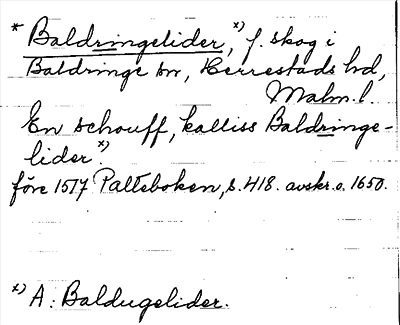 * Baldringelider, x) f. skog i
Baldringe sn, Herrestads hd,
Malm. l.
En schouff, kalliss Baldringe-
lider x).
före 1517 Palteboken, s. 418. avskr. o. 1650.
x) A: Baldugelider.